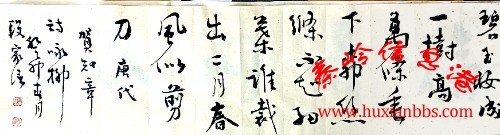 碧玉妆成
一樹高
萬條垂
下绿丝
絛不知细
葉谁裁
出二月春
風似剪
刀 唐代
贺知章
诗咏柳
癸卯春月
段家
信息港
www.huxianbbs.com